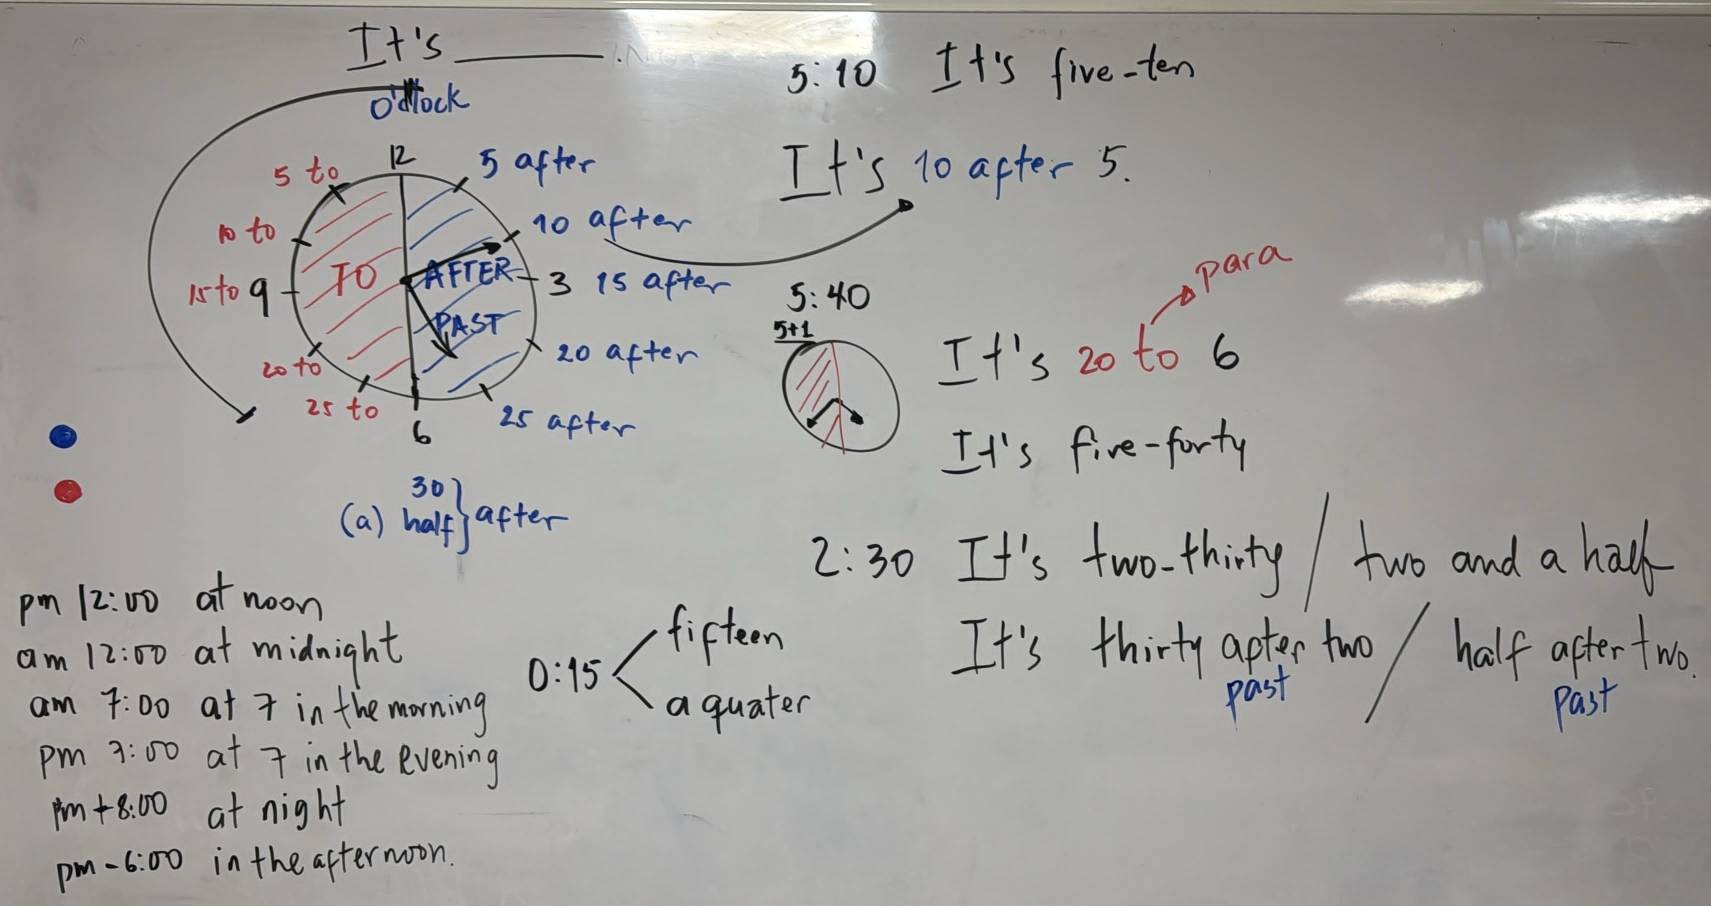 It's ______
o'clock
12
5 after
10 after
3 15 after
20 after
25 after
6
25 to
20 to
15 to 9
10 to
5 to
TO
AFTER
PAST
(a) 30 half } after
5:10 It's five-ten
It's 10 after 5.
5:40
5+1
para
It's 20 to 6
It's five-forty
2:30 It's two-thirty / two and a half
It's thirty after two / half after two.
past past
0:15 fifteen
a quater
pm 12:00 at noon
am 12:00 at midnight
am 7:00 at 7 in the morning
pm 7:00 at 7 in the evening
pm + 8:00 at night
pm - 6:00 in the afternoon.